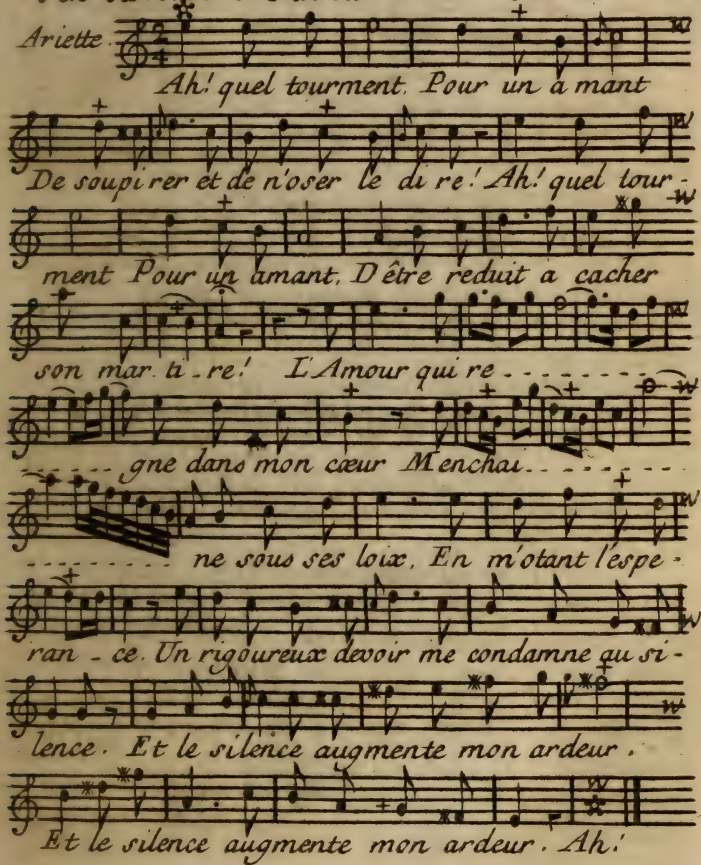 Ariette.
Ah! quel tourment. Pour un amant
De soupirer et de n'oser le di re! Ah! quel tour-
ment Pour un amant, D'être reduit a cacher
son mar. ti-re! L'Amour qui re - - - - - - - - - -
- - - - - - gne dans mon cœur M'enchai - - - - - - - -
- - - - - - - - ne sous ses loix, En m'otant l'espe-
ran - ce. Un rigoureux devoir me condamne au si-
lence. Et le silence augmente mon ardeur.
Et le silence augmente mon ardeur. Ah!